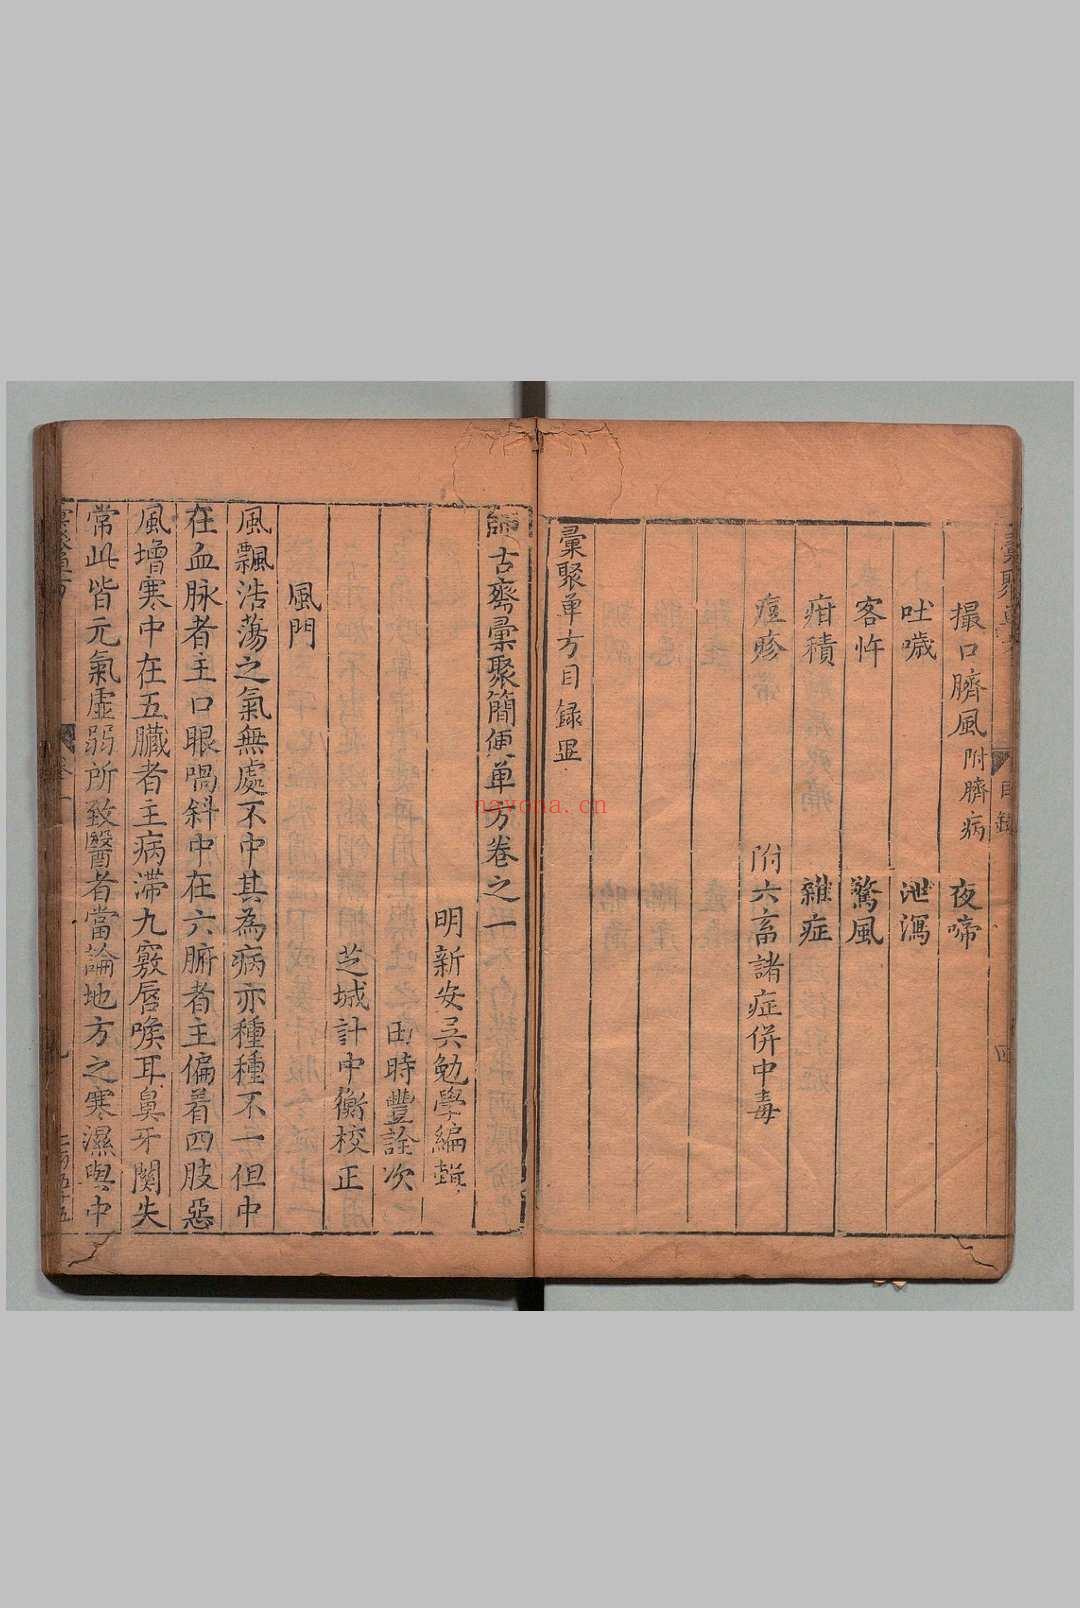 撮口臍風附臍病　夜啼
吐噦　泄瀉
客忤　驚風
疳積　雜症
痘疹　附六畜諸症併中毒
彙聚单方目録畢
師古齋彙聚簡便单方卷之一
明新安吳勉學編輯
田時豐詮次
芝城計中衡校正
風門
風飄浩蕩之氣無處不中其為病亦種種不一但中
在血脉者主口眼喎斜中在六腑者主偏着四肢惡
風增寒中在五臟者主病滯九竅唇喉耳鼻牙関失
常此皆元氣虛弱所致醫者當論地方之寒濕與中
nayona.cn